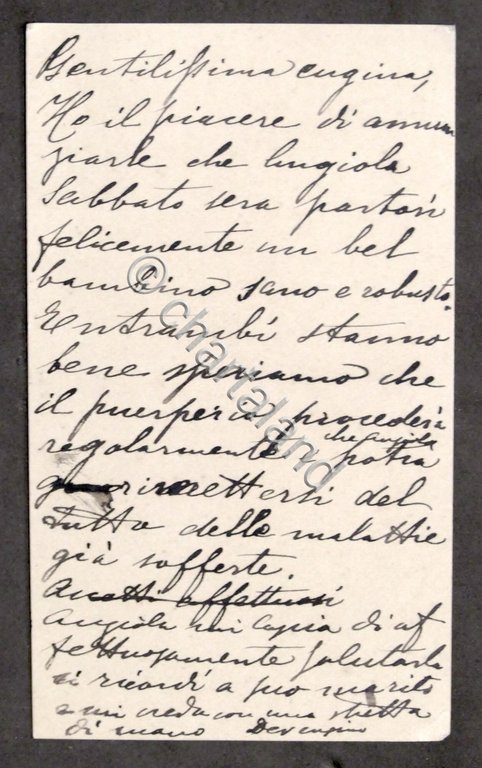 Gentilissima cugina,
Ho il piacere di annun
ziarle che Angiola
Sabbato sera partorì
felicemente un bel
bambino sano e robusto.
Entrambi stanno
bene speriamo che
il puerperio procederà
regolarmente e che Angiola potrà
rimettersi del
tutto delle malattie
già sofferte.
affettuosi
Angiola mi di af
fettuosamente salutarla
si ricordi a suo marito
e mi creda con una stretta
di mano Dev cugino
© chartaland